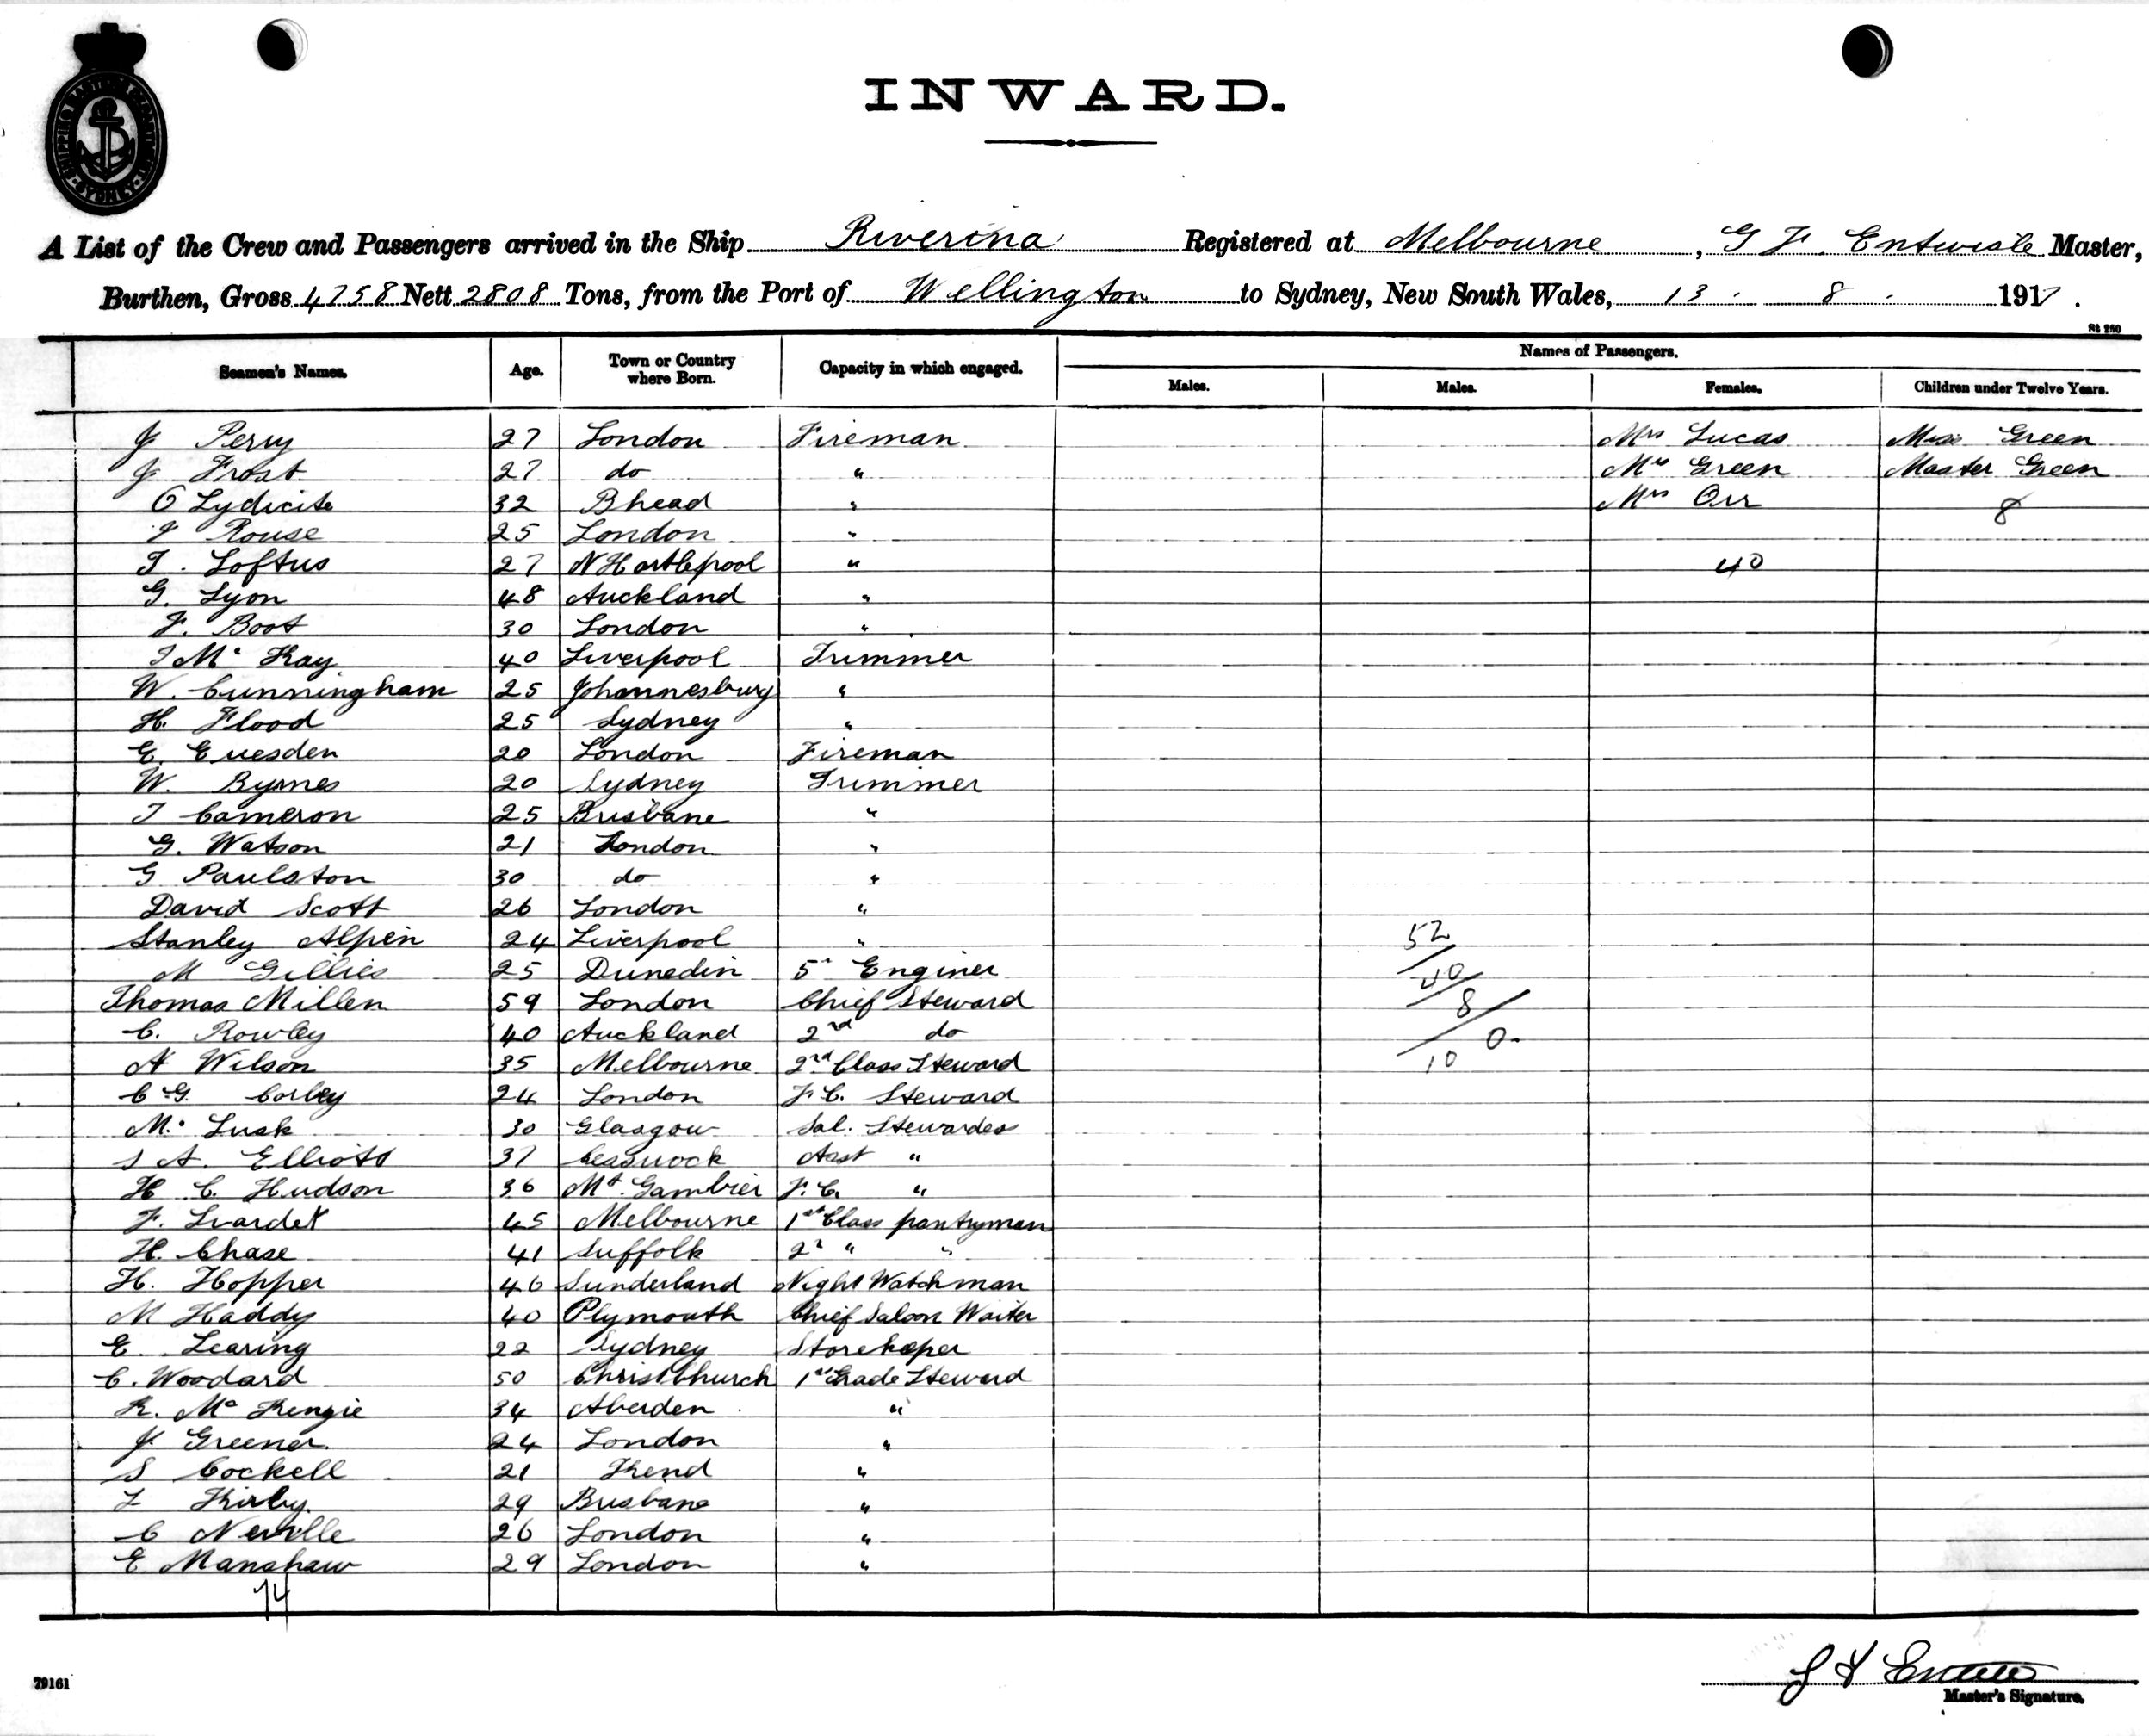 INWARD.
A List of the Crew and Passengers arrived in the Ship Riverina Registered at Melbourne, G F. Entwisle Master,
Burthen, Gross 4758 Nett 2808 Tons, from the Port of Wellington to Sydney, New South Wales, 13 . 8 . 1917.
Rt 250
Seamen's Names. Age. Town or Country where Born. Capacity in which engaged. Names of Passengers.
Males. Males. Females. Children under Twelve Years.
J Perry 27 London Fireman Mrs Lucas Miss Green
J Frost 27 do " Mrs Green Master Green
O Lydicite 32 Bhead " Mrs Orr 8
J Rouse 25 London "
T. Loftus 27 N Hartlepool " 40
G. Lyon 48 Auckland "
F. Boot 30 London "
J Mc Kay 40 Liverpool Trimmer
W. Cunningham 25 Johannesburg "
H. Flood 25 Sydney "
E. Euesden 20 London Fireman
W. Byrnes 20 Sydney Trimmer
T Cameron 25 Brisbane "
G. Watson 21 London "
G Paulston 30 do "
David Scott 26 London "
Stanley Alpen 24 Liverpool " 52
M Gillies 25 Dunedin 5th Enginer 40
Thomas Millen 59 London Chief Steward 8
C. Rowley 40 Auckland 2nd do 0.
A Wilson 35 Melbourne 2nd Class Steward 10
C G. Corley 24 London F. C. Steward
M. Lusk 30 Glasgow Sal. Stewardes
S A. Elliott 37 Cessnock Asst "
H C. Hudson 36 Mt. Gambier F. C. "
F. Liardet 45 Melbourne 1st Class pantryman
H. Chase 41 Suffolk 2n " "
H. Hopper 46 Sunderland Night Watchman
M Haddy 40 Plymouth Chief Saloon Waiter
E. Learing 22 Sydney Storekeper
C. Woodard 50 Christchurch 1st Grade Steward
K. Mc Kenzie 34 Aberden "
J Greener 24 London "
S Cockell 21 Kend "
L Kirby 29 Brisbane "
C Neville 26 London "
E Manshaw 29 London "
74
79161
Master's Signature.